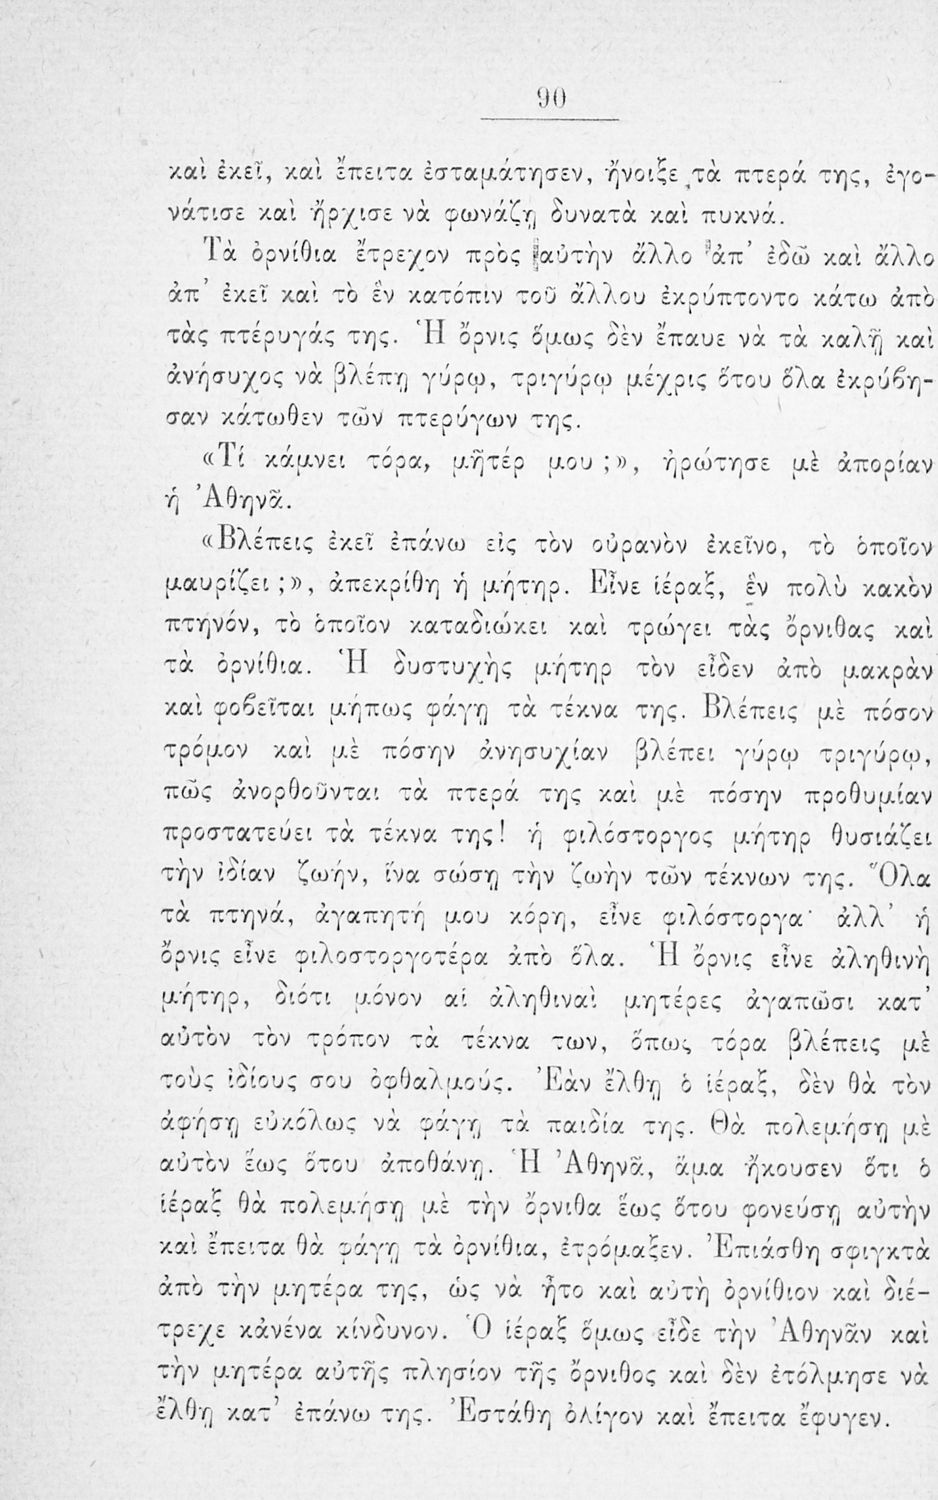 90
καὶ ἐκεῖ, καὶ ἔπειτα ἐσταμάτησεν, ἤνοιξε τὰ πτερά της, ἐγο-
νάτισε καὶ ἤρχισε νὰ φωνάζῃ δυνατὰ καὶ πυκνά.
Τὰ ὀρνίθια ἔτρεχον πρὸς αὐτὴν ἄλλο ἀπ' ἐδῶ καὶ ἄλλο
ἀπ' ἐκεῖ καὶ τὸ ἓν κατόπιν τοῦ ἄλλου ἐκρύπτοντο κάτω ἀπὸ
τὰς πτέρυγάς της. Ἡ ὄρνις ὅμως δὲν ἔπαυε νὰ τὰ καλῇ καὶ
ἀνήσυχος νὰ βλέπῃ γύρῳ, τριγύρῳ μέχρις ὅτου ὅλα ἐκρύβη-
σαν κάτωθεν τῶν πτερύγων της.
«Τί κάμνει τόρα, μῆτέρ μου ;», ἠρώτησε μὲ ἀπορίαν
ἡ Ἀθηνᾶ.
«Βλέπεις ἐκεῖ ἐπάνω εἰς τὸν οὐρανὸν ἐκεῖνο, τὸ ὁποῖον
μαυρίζει ;», ἀπεκρίθη ἡ μήτηρ. Εἶνε ἱέραξ, ἓν πολὺ κακὸν
πτηνόν, τὸ ὁποῖον καταδιώκει καὶ τρώγει τὰς ὄρνιθας καὶ
τὰ ὀρνίθια. Ἡ δυστυχὴς μήτηρ τὸν εἶδεν ἀπὸ μακρὰν
καὶ φοβεῖται μήπως φάγῃ τὰ τέκνα της. Βλέπεις μὲ πόσον
τρόμον καὶ μὲ πόσην ἀνησυχίαν βλέπει γύρῳ τριγύρῳ,
πῶς ἀνορθοῦνται τὰ πτερά της καὶ μὲ πόσην προθυμίαν
προστατεύει τὰ τέκνα της! ἡ φιλόστοργος μήτηρ θυσιάζει
τὴν ἰδίαν ζωήν, ἵνα σώσῃ τὴν ζωὴν τῶν τέκνων της. Ὅλα
τὰ πτηνά, ἀγαπητή μου κόρη, εἶνε φιλόστοργα· ἀλλ' ἡ
ὄρνις εἶνε φιλοστοργοτέρα ἀπὸ ὅλα. Ἡ ὄρνις εἶνε ἀληθινὴ
μήτηρ, διότι μόνον αἱ ἀληθιναὶ μητέρες ἀγαπῶσι κατ'
αὐτὸν τὸν τρόπον τὰ τέκνα των, ὅπως τόρα βλέπεις μὲ
τοὺς ἰδίους σου ὀφθαλμούς. Ἐὰν ἔλθῃ ὁ ἱέραξ, δὲν θὰ τὸν
ἀφήσῃ εὐκόλως νὰ φάγῃ τὰ παιδία της. Θὰ πολεμήσῃ μὲ
αὐτὸν ἕως ὅτου ἀποθάνῃ. Ἡ Ἀθηνᾶ, ἅμα ἤκουσεν ὅτι ὁ
ἱέραξ θὰ πολεμήσῃ μὲ τὴν ὄρνιθα ἕως ὅτου φονεύσῃ αὐτὴν
καὶ ἔπειτα θὰ φάγῃ τὰ ὀρνίθια, ἐτρόμαξεν. Ἐπιάσθη σφιγκτὰ
ἀπὸ τὴν μητέρα της, ὡς νὰ ἦτο καὶ αὐτὴ ὀρνίθιον καὶ διέ-
τρεχε κἀνένα κίνδυνον. Ὁ ἱέραξ ὅμως εἶδε τὴν Ἀθηνᾶν καὶ
τὴν μητέρα αὐτῆς πλησίον τῆς ὄρνιθος καὶ δὲν ἐτόλμησε νὰ
ἔλθῃ κατ' ἐπάνω της. Ἐστάθη ὀλίγον καὶ ἔπειτα ἔφυγεν.